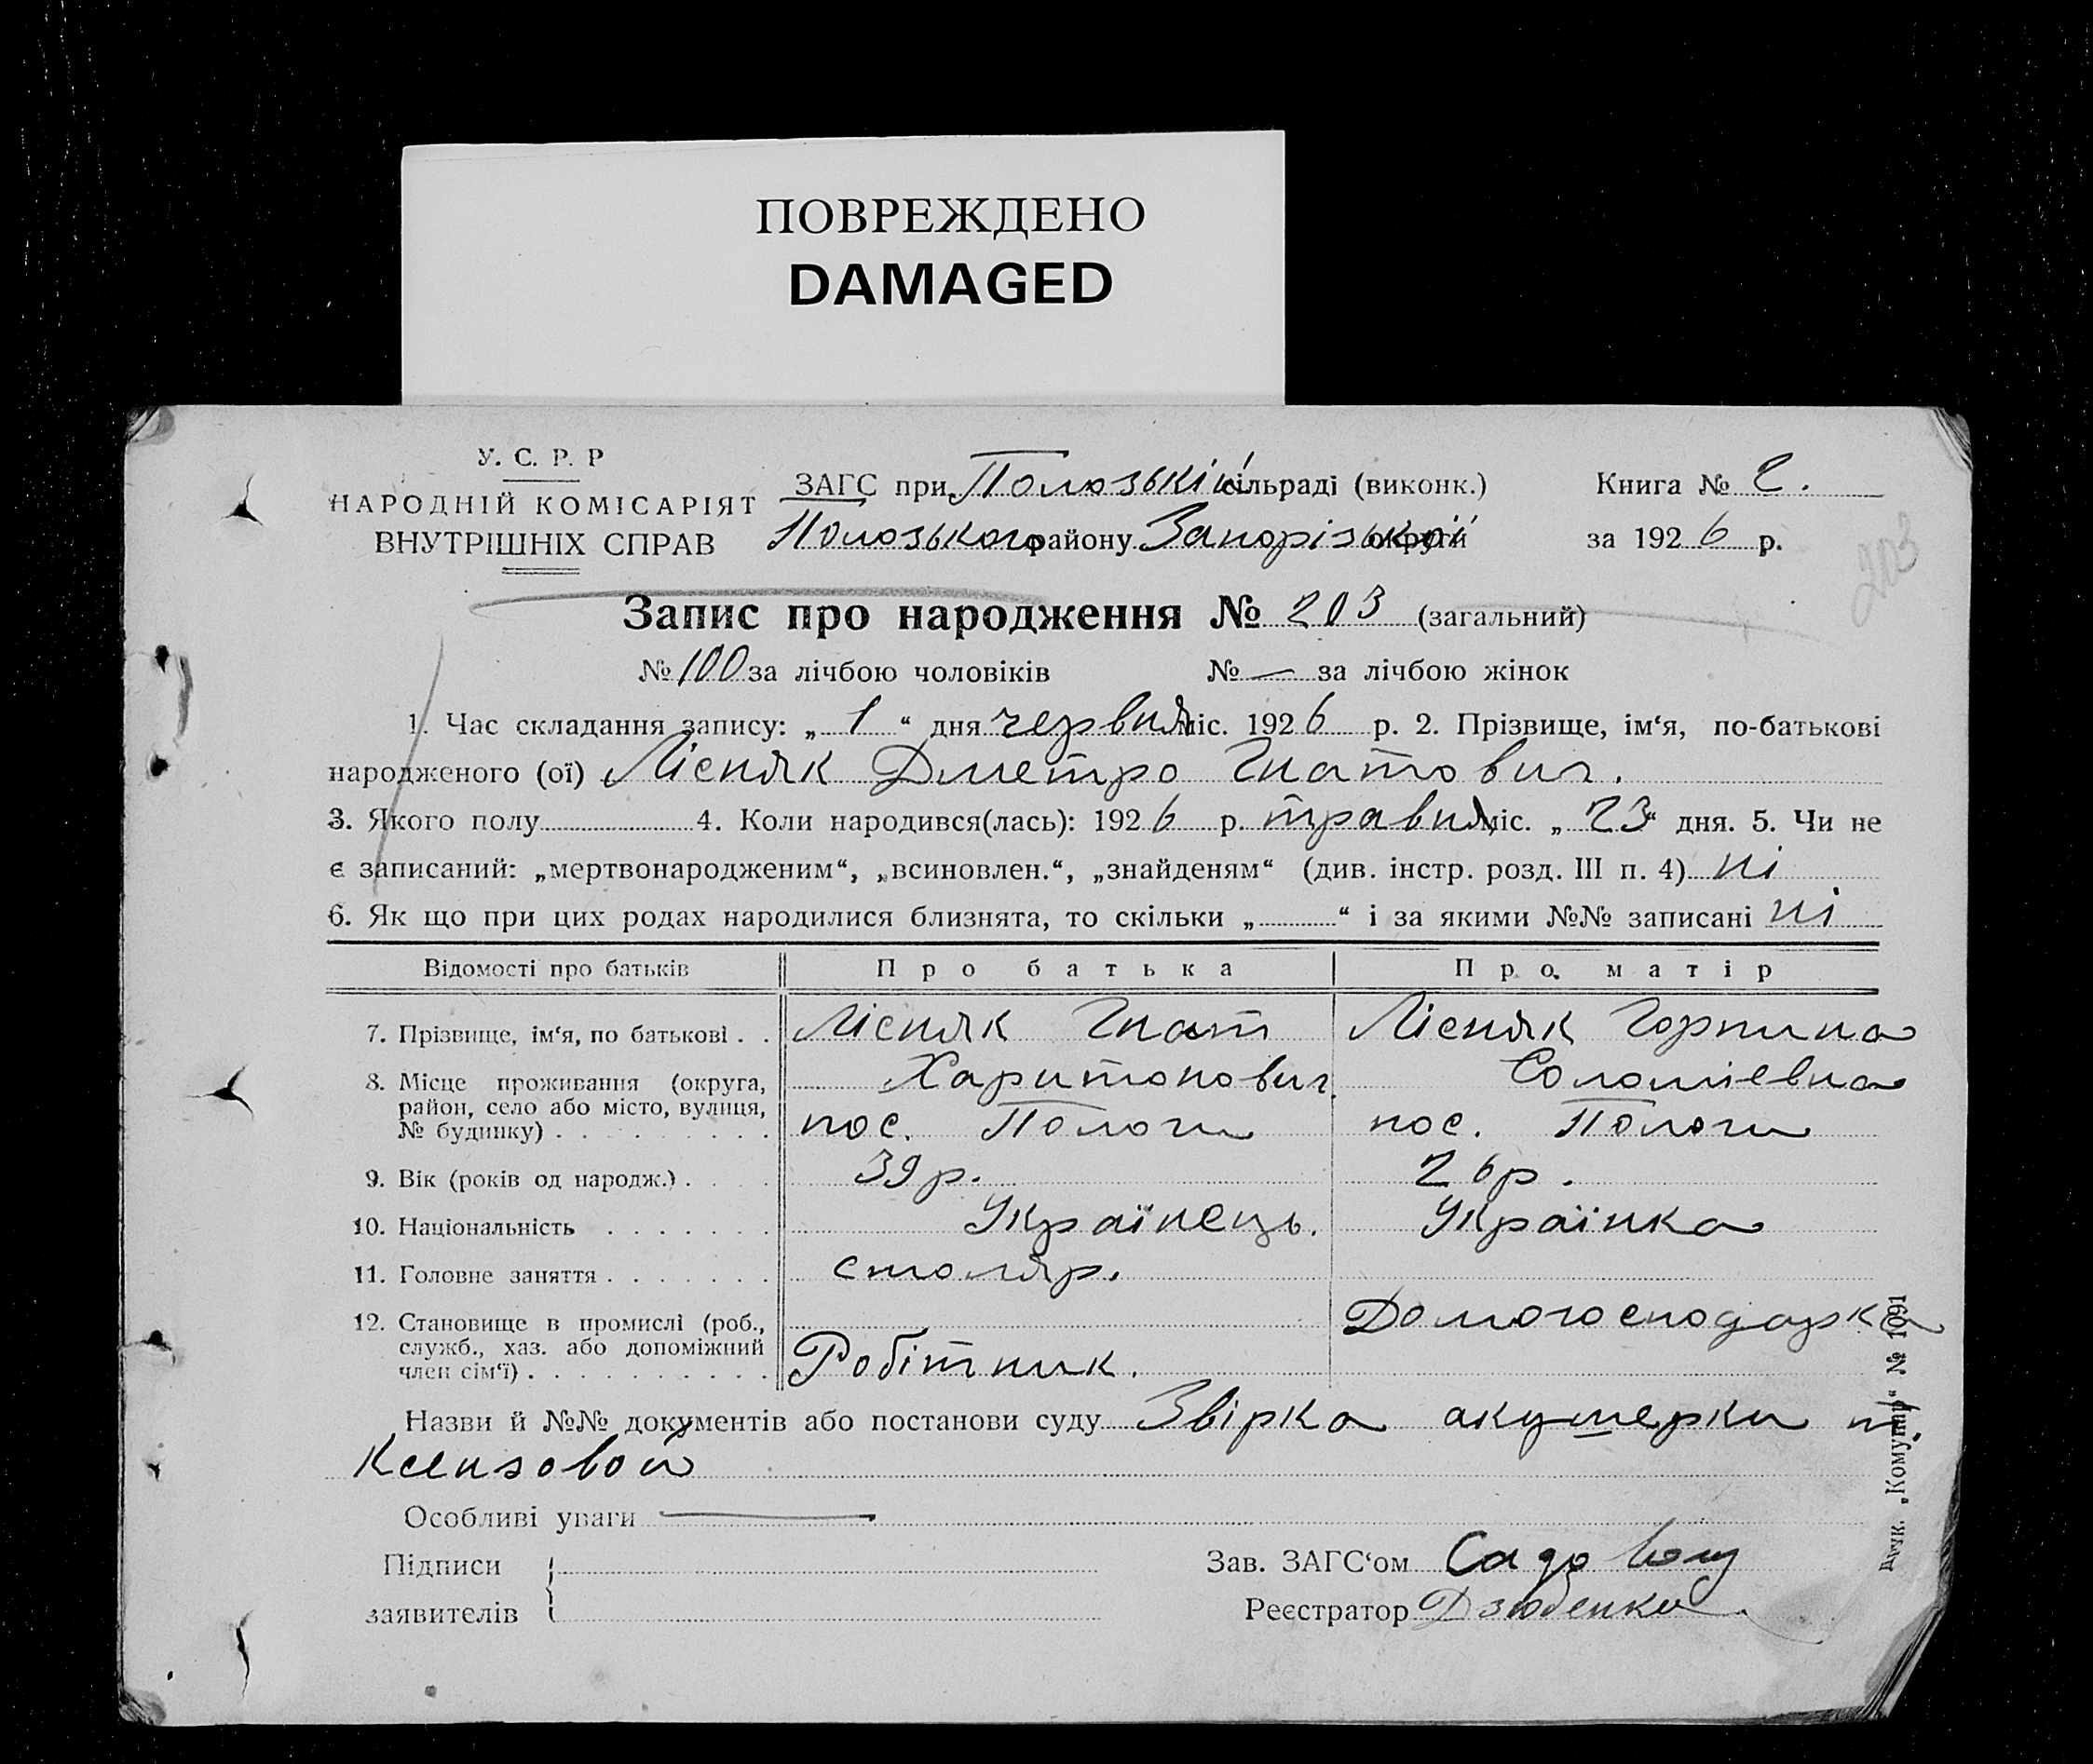 ПОВРЕЖДЕНО
DAMAGED
У. С. Р. Р
НАРОДНІЙ КОМІСАРІЯТ
ВНУТРІШНІХ СПРАВ
ЗАГС при Полозькій сільраді (виконк.)
Полозького району Запорізької округи
Книга № 2.
за 1926 р.
203
Запис про народження № 203 (загальний)
№ 100 за лічбою чоловіків № — за лічбою жінок
1. Час складання запису: „ 1 “ дня червня міс. 1926 р. 2. Прізвище, ім‘я, по-батькові
народженого (ої) Лісняк Дметро Гнатович.
3. Якого полу 4. Коли народився(лась): 1926 р. травня міс. „ 23 “ дня. 5. Чи не
є записаний: „мертвонародженим“, „всиновлен.“, „знайденям“ (див. інстр. розд. III п. 4) ні
6. Як що при цих родах народилися близнята, то скільки „ “ і за якими №№ записані ні
Відомості про батьків Про батька Про матір
7. Прізвище, ім‘я, по батькові . . Лісняк Гнат Лісняк Горпина
Харитонович Соломіевна
8. Місце проживання (округа,
район, село або місто, вулиця,
№ будинку) . . . . . . . . . пос. Пологи пос. Пологи
9. Вік (років од народж.) . . . . 39 р. 26 р.
10. Національність . . . . . . . Українець. Українка
11. Головне заняття . . . . . . . столяр.
12. Становище в промислі (роб., Домогосподарка
служб., хаз. або допоміжний
член сім‘ї) . . . . . . . . . . Робітник.
Назви й №№ документів або постанови суду Звірка акушерки
Особливі уваги —
Підписи
заявителів
Зав. ЗАГС‘ом
Реєстратор Дзюбенко
Друк. „Комунар“ № 1091